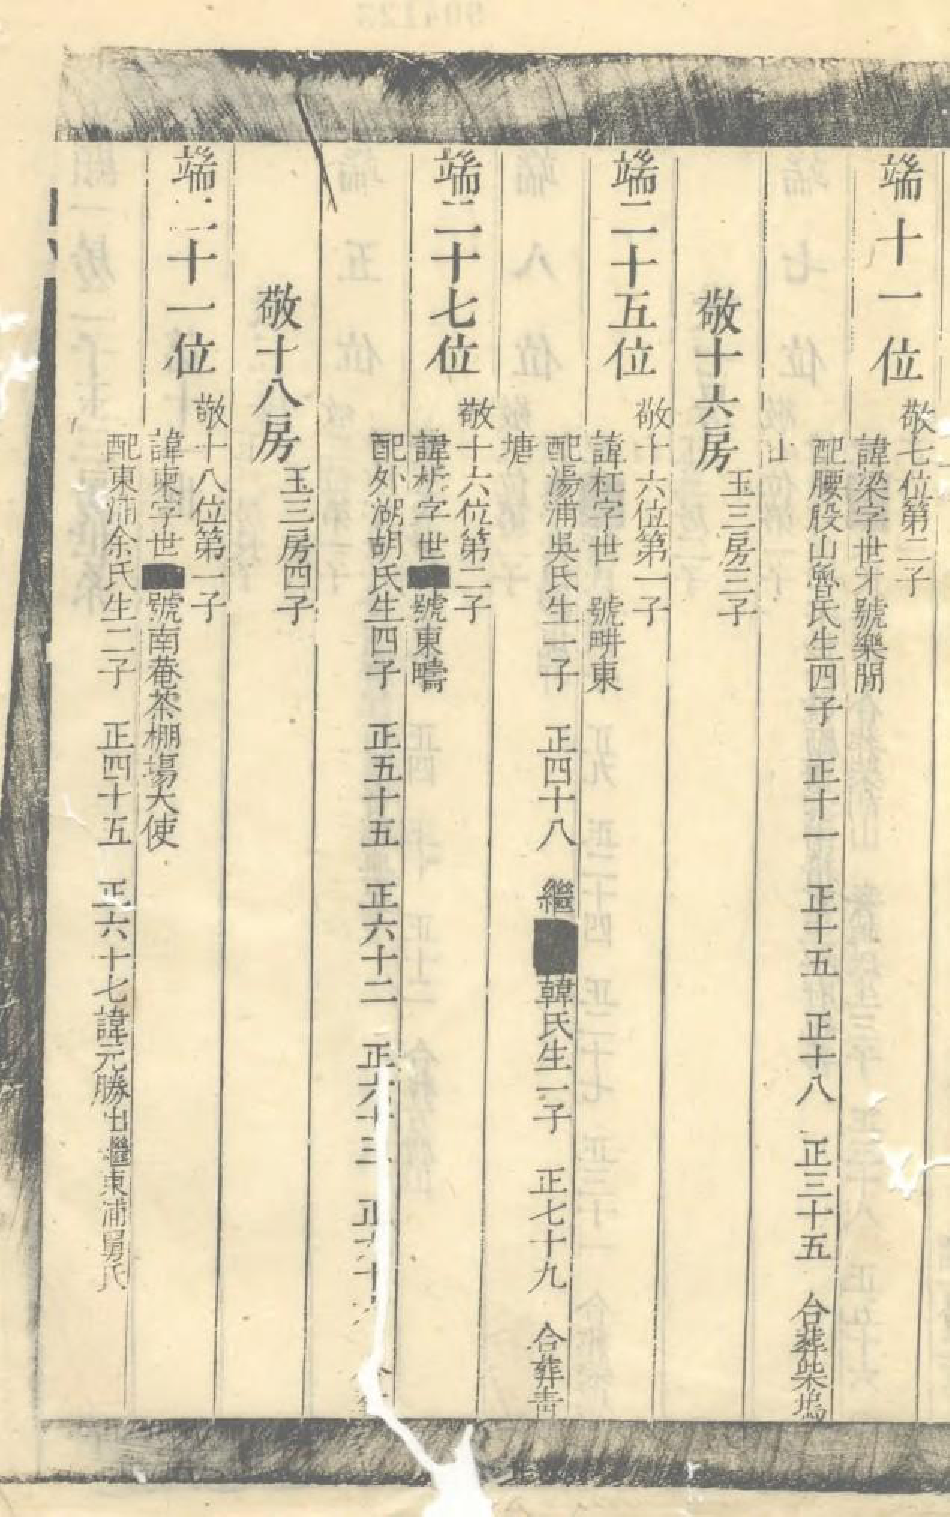 端十一位
敬七位第二子
諱梁字世才號樂閒
配腰股山魯氏生四子 正十一 正十五 正十八 正三十五 合葬柴塢
山
敬十六房
玉三房三子
端二十五位
敬十六位第一子
諱杠字世 號畊東
配湯浦吳氏生一子 正四十八 繼 韓氏生一子 正七十九 合葬靑
塘
端二十七位
敬十六位第二子
諱析字世 號東疇
配外湖胡氏生四子 正五十五 正六十二 正六十三
敬十八房
玉三房四子
端二十一位
敬十八位第一子
諱柬字世 號南菴茶棚塲大使
配東浦余氏生二子 正四十五 正六十七諱元勝出繼東浦舅氏